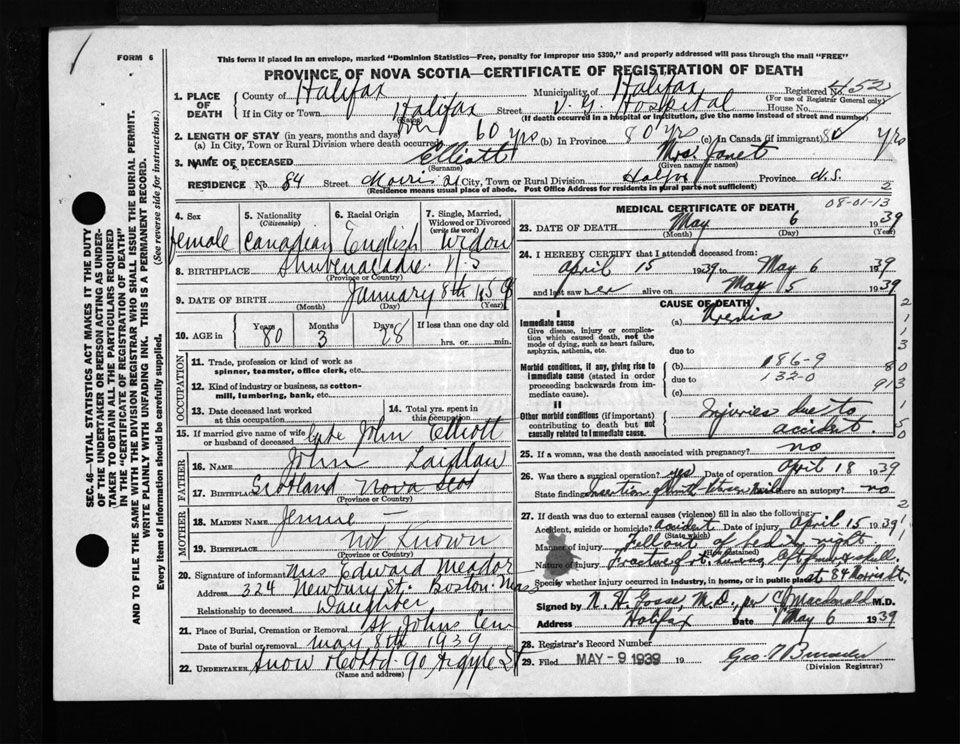 FORM 6
This form if placed in an envelope, marked "Dominion Statistics—Free, penalty for improper use $300," and properly addressed will pass through the mail "FREE"
PROVINCE OF NOVA SCOTIA—CERTIFICATE OF REGISTRATION OF DEATH
1. PLACE OF DEATH
County of Halifax Municipality of Halifax Registered No. 452
(For use of Registrar General only)
If in City or Town Halifax Street V. G. Hospital House No.
(Name) (If death occurred in a hospital or institution, give the name instead of street and number)
2. LENGTH OF STAY (in years, months and days)
(a) In City, Town or Rural Division where death occurred 60 yrs (b) In Province 80 yrs (c) In Canada (if immigrant) 80 yrs
3. NAME OF DECEASED Elliott Mrs Janet
(Surname) (Given name or names)
RESIDENCE No 84 Street Morris St City, Town or Rural Division Halifax Province N.S.
(Residence means usual place of abode. Post Office Address for residents in rural parts not sufficient) 2
SEC. 46—VITAL STATISTICS ACT MAKES IT THE DUTY
OF THE UNDERTAKER OR PERSON ACTING AS UNDER-
TAKER TO OBTAIN ALL THE PARTICULARS REQUIRED
IN THE "CERTIFICATE OF REGISTRATION OF DEATH"
AND TO FILE THE SAME WITH THE DIVISION REGISTRAR WHO SHALL ISSUE THE BURIAL PERMIT.
WRITE PLAINLY WITH UNFADING INK. THIS IS A PERMANENT RECORD.
Every item of information should be carefully supplied. (See reverse side for instructions.)
4. Sex
female
5. Nationality
(Citizenship)
Canadian
6. Racial Origin
English
7. Single, Married,
Widowed or Divorced
(write the word)
Widow
8. BIRTHPLACE Shubenacadie N.S
(Province or Country)
9. DATE OF BIRTH January 8th 1859
(Month) (Day) (Year)
10. AGE in
Years 80
Months 3
Days 28
If less than one day old
hrs. or min.
OCCUPATION
11. Trade, profession or kind of work as
spinner, teamster, office clerk, etc.
12. Kind of industry or business, as cotton-
mill, lumbering, bank, etc.
13. Date deceased last worked
at this occupation
14. Total yrs. spent in
this occupation
15. If married give name of wife
or husband of deceased Late John Elliott
FATHER
16. NAME John Laidlaw
17. BIRTHPLACE Scotland Nova Scot
(Province or Country)
MOTHER
18. MAIDEN NAME Jennie —
19. BIRTHPLACE Not Known
(Province or Country)
20. Signature of informant Mrs Edward Meador
Address 324 Newbury St. Boston Mass
Relationship to deceased Daughter
21. Place of Burial, Cremation or Removal St Johns Cem
Date of burial or removal may 8th 1939
22. UNDERTAKER Snow & Co Ltd. 90 Argyle St
(Name and address)
08-01-13
MEDICAL CERTIFICATE OF DEATH
23. DATE OF DEATH May 6 1939
(Month) (Day) (Year)
24. I HEREBY CERTIFY that I attended deceased from:
April 15 1939 to May 6 1939
and last saw her alive on May 5 1939
CAUSE OF DEATH
I
Immediate cause
Give disease, injury or complica-
tion which caused death, not the
mode of dying, such as heart failure,
asphyxia, asthenia, etc.
(a) Uremia
due to
Morbid conditions, if any, giving rise to
immediate cause (stated in order
proceeding backwards from im-
mediate cause).
(b) 186-9
due to 132-0
(c)
II
Other morbid conditions (if important)
contributing to death but not
causally related to immediate cause.
Injuries due to
accident.
25. If a woman, was the death associated with pregnancy? no
26. Was there a surgical operation? yes Date of operation April 18 1939
State findings Insertion of Smith Petersen Nail Was there an autopsy? no
27. If death was due to external causes (violence) fill in also the following:
Accident, suicide or homicide? accident Date of injury April 15 1939
(State which)
Manner of injury Fell out of bed at night.
(How sustained)
Nature of injury
Specify whether injury occurred in industry, in home, or in public place at 84 Morris St.
Signed by N. H. Gosse, M.D., per C. Macdonald M.D.
Address Halifax Date May 6 1939
28. Registrar's Record Number
29. Filed MAY - 9 1939 19
(Division Registrar)